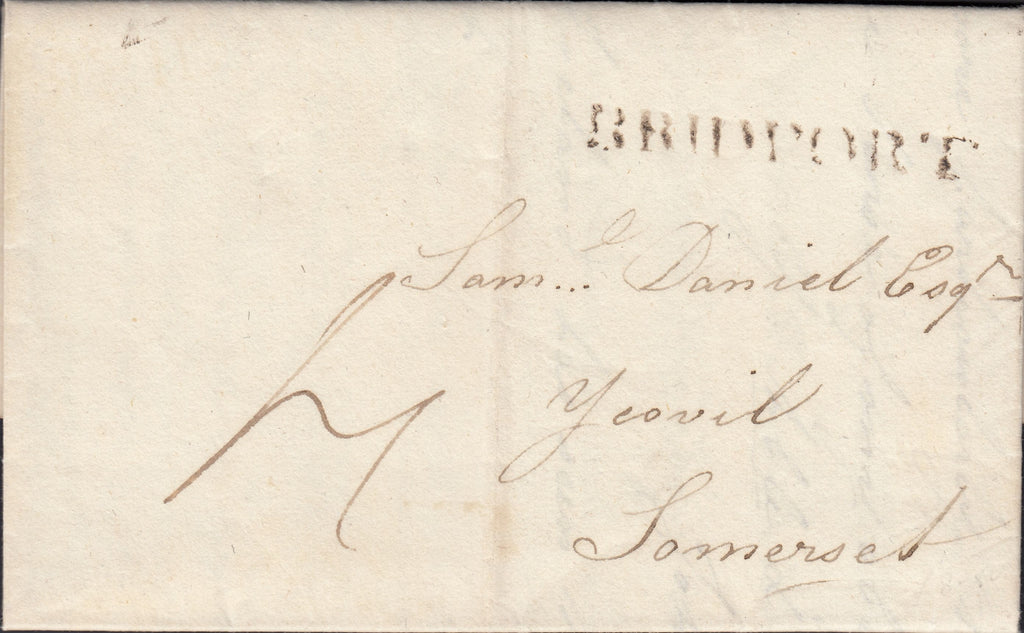 BRIDPORT
Sam.l Daniel Esqr
Yeovil
Somerset
4